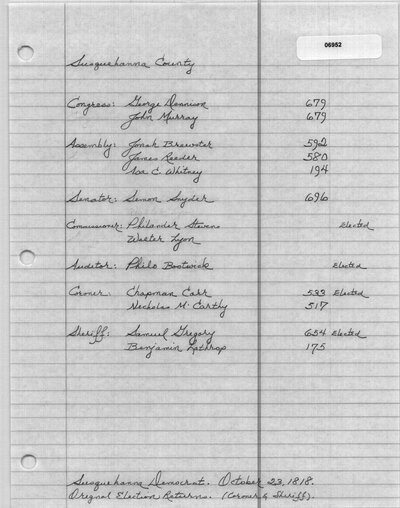 06952
Susquehanna County
Congress: George Dennison 679
John Murray 679
Assembly: Jonah Brewster 592
James Reeder 580
Ira C. Whitney 194
Senator: Simon Snyder 696
Commissioner: Philander Stevens Elected
Walter Lyon
Auditor: Philo Bostwick Elected
Coroner: Chapman Carr 533 Elected
Nicholas McCarthy 517
Sheriff: Samuel Gregory 654 Elected
Benjamin Lathrop 175
Susquehanna Democrat. October 23, 1818.
Orignal Election Returns. (Coroner & Sheriff).